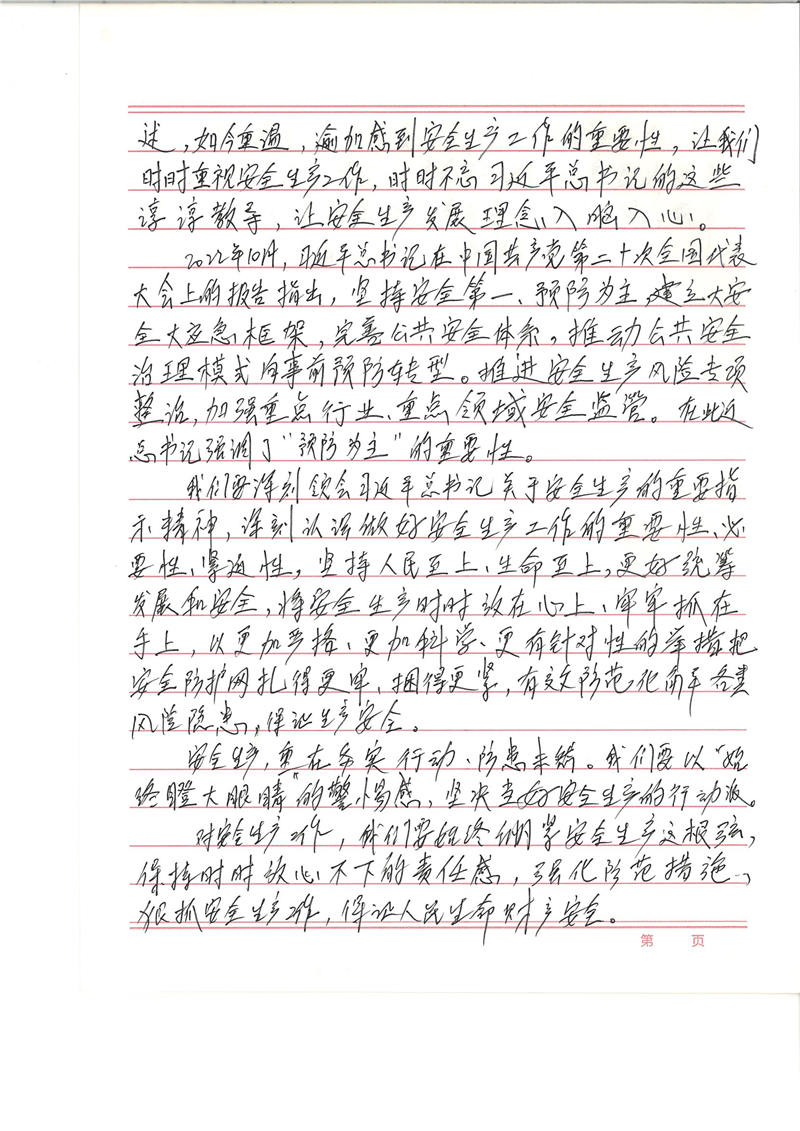 述，如今重温，愈加感到安全生产工作的重要性，让我们
时时重视安全生产工作，时时不忘习近平总书记的这些
谆谆教导，让安全生产发展理念入脑入心。
2022年10月，习近平总书记在中国共产党第二十次全国代表
大会上的报告指出，坚持安全第一、预防为主，建立大安
全大应急框架，完善公共安全体系。推动公共安全
治理模式向事前预防转型。推进安全生产风险专项
整治，加强重点行业、重点领域安全监管。在此近
总书记强调了“预防为主”的重要性。
我们要深刻领会习近平总书记关于安全生产的重要指
示精神，深刻认识做好安全生产工作的重要性、必
要性、紧迫性，坚持人民至上、生命至上，更好统筹
发展和安全，将安全生产时时放在心上、牢牢抓在
手上，以更加严格、更加科学、更有针对性的举措把
安全防护网扎得更牢、捆得更紧，有效防范化解各类
风险隐患，保证生产安全。
安全生产，重在务实行动、防患未然。我们要以“始
终瞪大眼睛”的警惕感，坚决当好安全生产的行动派。
对安全生产工作，我们要始终绷紧安全生产这根弦，
保持时时放心不下的责任感，强化防范措施，
狠抓安全生产工作，保证人民生命财产安全。
第 页